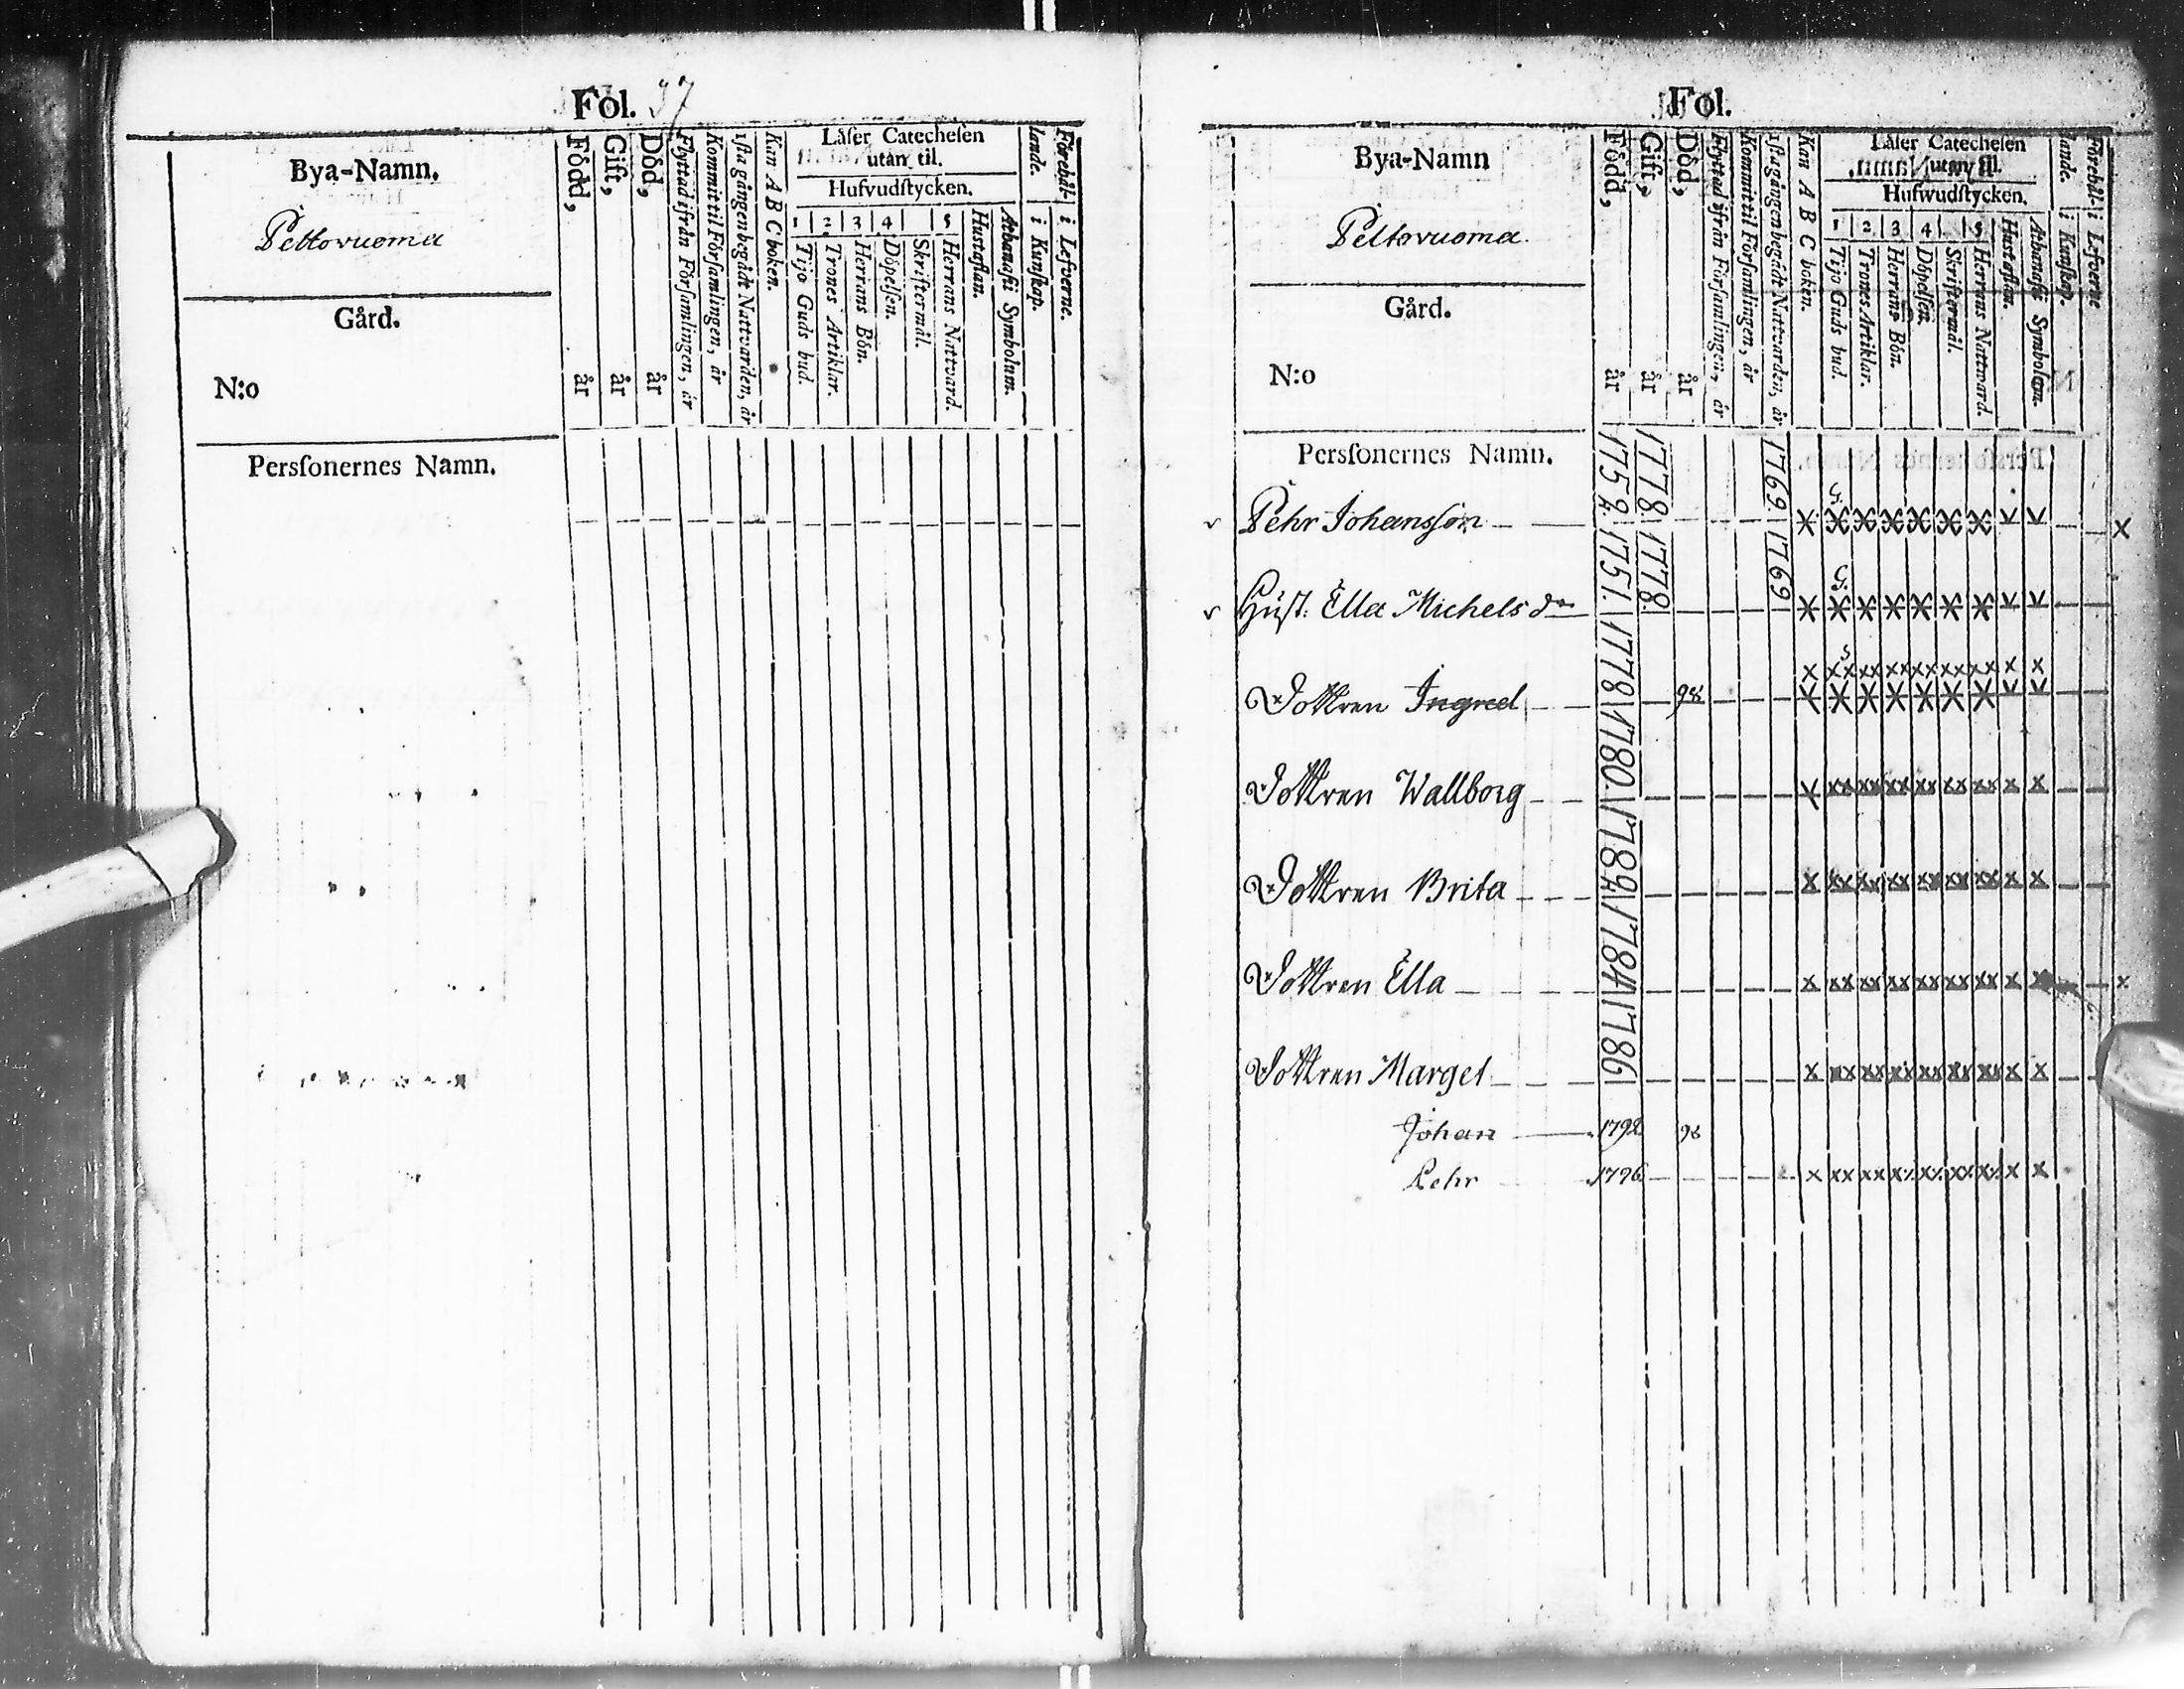 Fol. 37
Bya-Namn.
Peltovuoma
Gård.
N:o
Persſonernes Namn.
Född, år
Gift, år
Död, år
Flyttad ifrån Förſamlingen, år
Kommit til Förſamlingen, år
1ſta gången begådt Nattvarden, år
Kan A B C boken.
Läſer Catecheſen
utan til.
Hufvudſtycken.
1 2 3 4 5
Tijo Guds bud.
Trones Artiklar.
Herrans Bön.
Döpelſen.
Skriftermål.
Herrans Nattvard.
Hustaflan.
Athanaſii Symbolum.
Förehållande. i Kunſkap.
i Lefverne.
Fol.
Bya-Namn
Peltovuoma.
Gård.
N:o
Persſonernes Namn.
Född, år
Gift, år
Död, år
Flyttad ifrån Förſamlingen, år
Kommit til Förſamlingen, år
1ſta gången begådt Nattvarden, år
Kan A B C boken.
Läſer Catecheſen
utan til.
Hufwudſtycken.
1 2 3 4 5
Tijo Guds bud.
Trones Artiklar.
Herrans Bön.
Döpelſen.
Skriftermål.
Herrans Nattward.
Hustaflan.
Athanaſii Symbolum.
Förehållande. i Kunſkap.
i Lefverne
v Pehr Johansſon 1752 1778 1769 G. x x x x x x x v v x
v Hust. Ella Michels dr 1751. 1778. 1769 G. x x x x x x x v v
Dottren Ingred 1778 98 s x xx xx xx xx xx xx x x
Dottren Wallborg 1780. x xx xx xx xx xx xx x x
Dottren Brita 1782 x xx xx xx xx xx xx x x
Dottren Ella 1784 x xx xx xx xx xx xx x x x
Dottren Marget 1786 x xx xx xx xx xx xx x x
Johan 1792 98
Pehr 1796 x xx xx xx xx xx xx x x